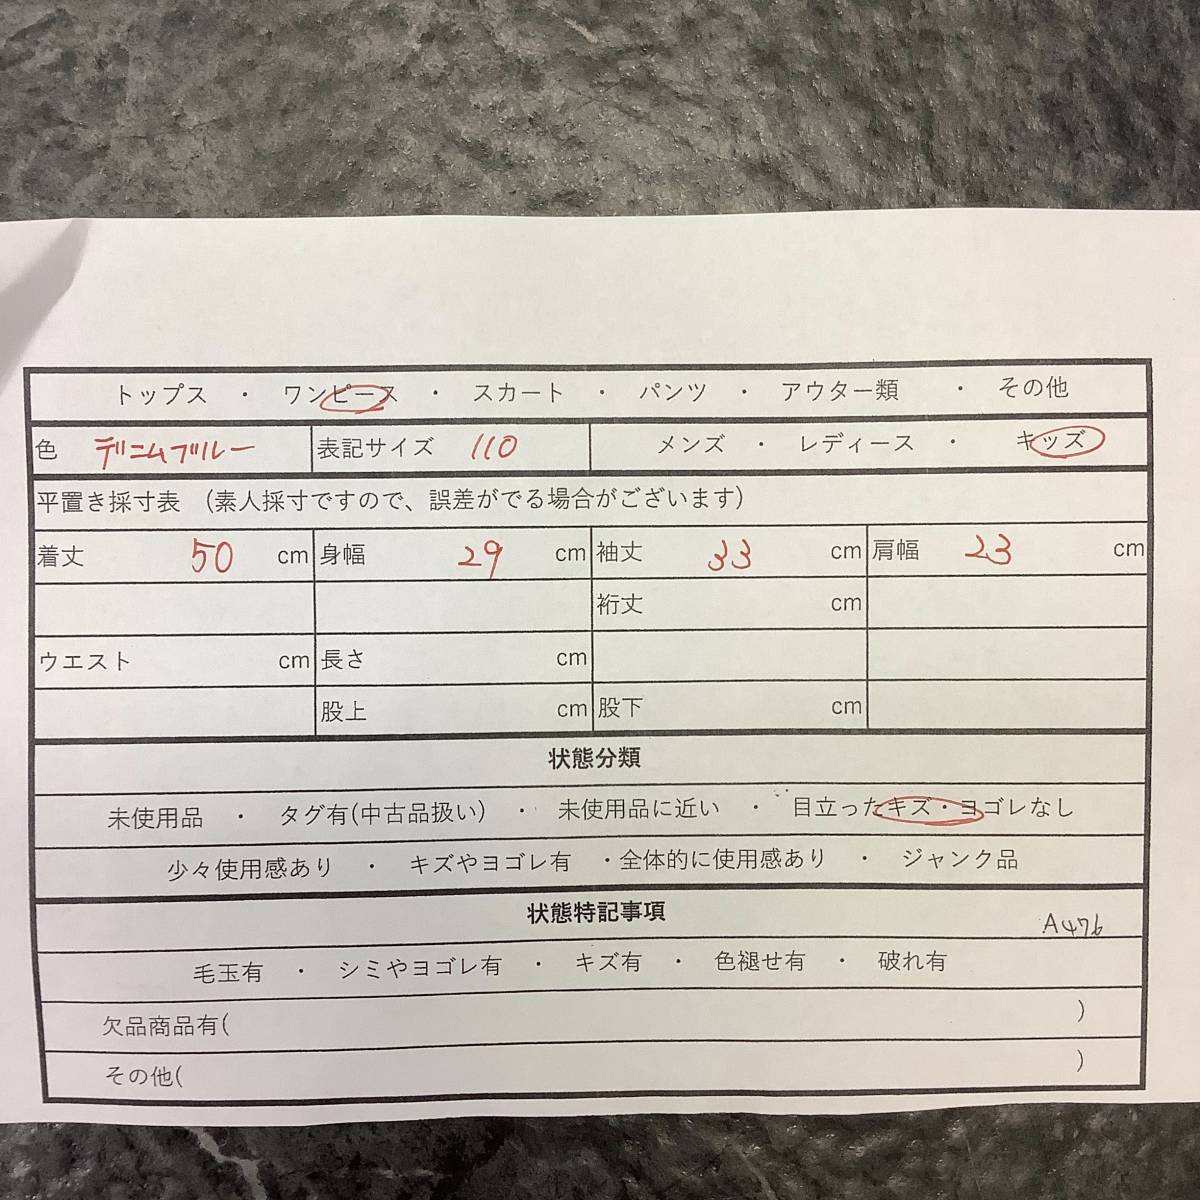 トップス ・ ワンピース ・ スカート ・ パンツ ・ アウター類 ・ その他
色 デニムブルー 表記サイズ 110 メンズ ・ レディース ・ キッズ
平置き採寸表 （素人採寸ですので、誤差がでる場合がございます）
着丈 50 cm 身幅 29 cm 袖丈 33 cm 肩幅 23 cm
裄丈 cm
ウエスト cm 長さ cm
股上 cm 股下 cm
状態分類
未使用品 ・ タグ有(中古品扱い) ・ 未使用品に近い ・ 目立ったキズ・ヨゴレなし
少々使用感あり ・ キズやヨゴレ有 ・全体的に使用感あり ・ ジャンク品
状態特記事項
A476
毛玉有 ・ シミやヨゴレ有 ・ キズ有 ・ 色褪せ有 ・ 破れ有
欠品商品有( )
その他( )